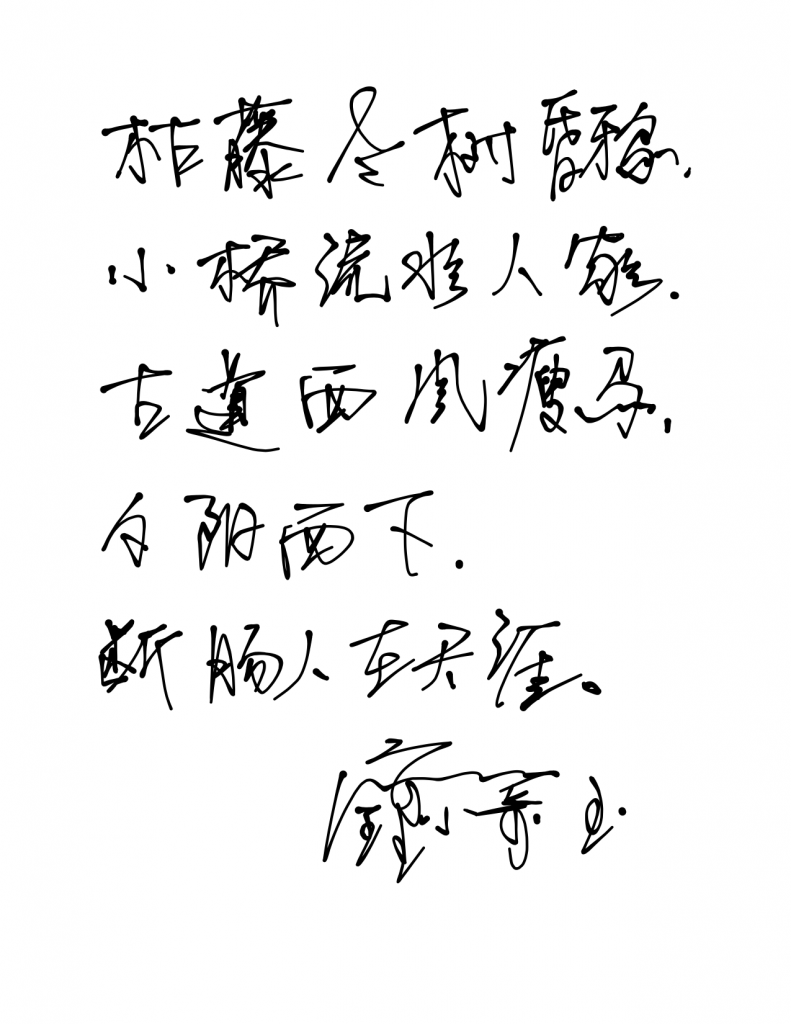 枯藤老树昏鸦,
小桥流水人家.
古道西风瘦马,
夕阳西下.
断肠人在天涯。